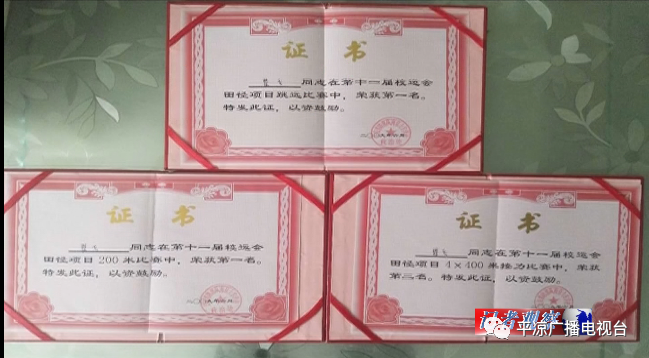 证 书
同志在第十一届校运会
田径项目跳远比赛中，荣获第一名。
特发此证，以资鼓励。
证 书
同志在第十一届校运会
田径项目200米比赛中，荣获第一名。
特发此证，以资鼓励。
证 书
同志在第十一届校运会
田径项目4×400米接力比赛中，荣获
第二名。特发此证，以资鼓励。
记者观察
平凉广播电视台